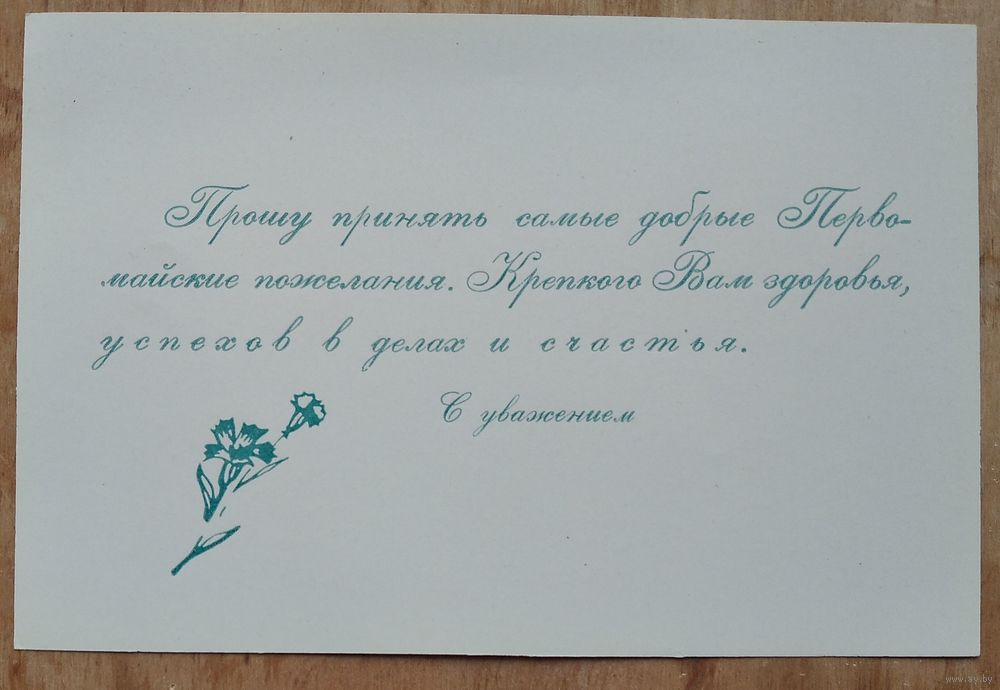 Прошу принять самые добрые Перво-
майские пожелания. Крепкого Вам здоровья,
успехов в делах и счастья.
С уважением
www.ay.by